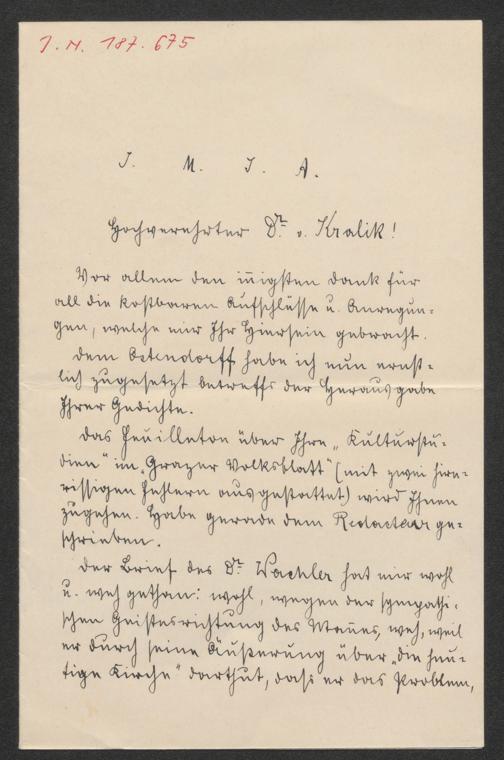 J. N. 187.675
J. M. J. A.
Hochverehrter Dr. v. Kralik!
Vor allem den iñigsten Dank für
all die kostbaren Aufschlüsse u. Anregun-
gen, welche mir Ihr Hiersein gebracht.
Dem Ostendorff habe ich nun ernst-
lich zugesetzt betreffs der Herausgabe
Ihrer Gedichte.
Das Feuilleton über Ihre „Kulturstu-
dien" im „Grazer Volksblatt" (mit zwei hirn-
rissigen Fehlern ausgestattet) wird Ihnen
zugehen. Habe gerade dem Redacteur ge-
schrieben.
Der Brief des Dr. Wachler hat mir wohl
u. weh gethan: wohl, wegen der sympathi-
schen Geistesrichtung des Mañes, weh, weil
er durch seine Äußerung über „die heu-
tige Kirche" darthut, dass er das Problem,